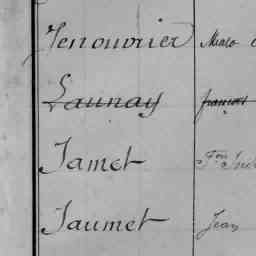 Jenouvrier
Launay françois
Jamet
Jaumet Jean